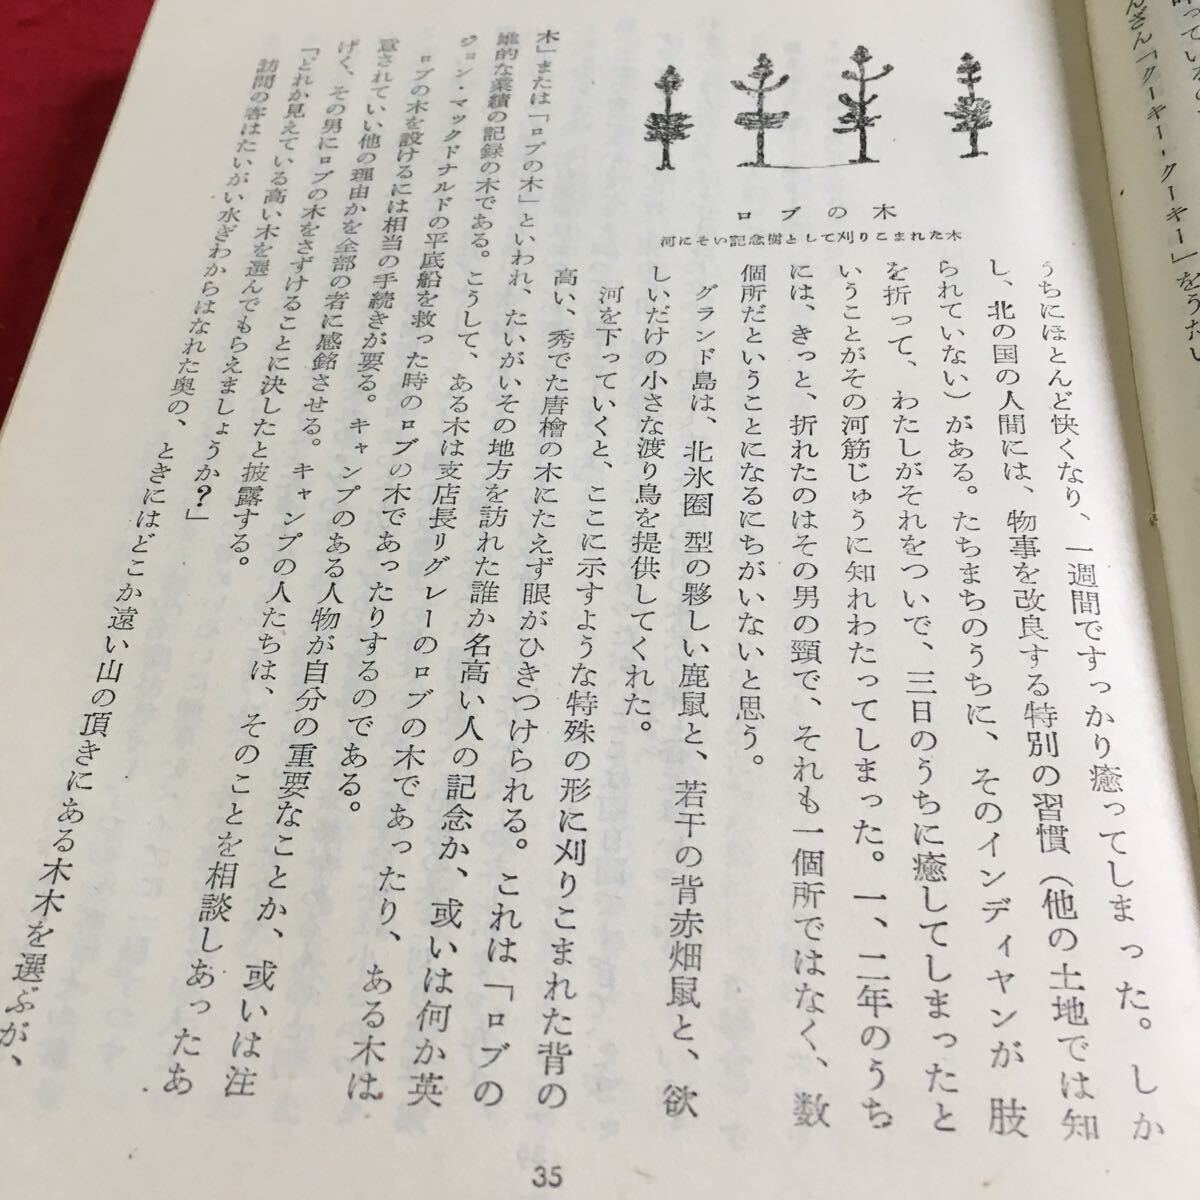 んざん「クーキー・クーキー」をうたい
ロブの木
河にそい記念樹として刈りこまれた木
うちにほとんど快くなり、一週間ですっかり癒ってしまった。しか
し、北の国の人間には、物事を改良する特別の習慣（他の土地では知
られていない）がある。たちまちのうちに、そのインディヤンが肢
を折って、わたしがそれをついで、三日のうちに癒してしまったと
いうことがその河筋じゅうに知れわたってしまった。一、二年のうち
には、きっと、折れたのはその男の頸で、それも一個所ではなく、数
個所だということになるにちがいないと思う。
グランド島は、北氷圏型の夥しい鹿鼠と、若干の背赤畑鼠と、欲
しいだけの小さな渡り鳥を提供してくれた。
河を下っていくと、ここに示すような特殊の形に刈りこまれた背の
高い、秀でた唐檜の木にたえず眼がひきつけられる。これは「ロブの
木」または「ロブの木」といわれ、たいがいその地方を訪れた誰か名高い人の記念か、或いは何か英
雄的な業績の記録の木である。こうして、ある木は支店長リグレーのロブの木であったり、ある木は
ジョン・マックドナルドの平底船を救った時のロブの木であったりするのである。
ロブの木を設けるには相当の手続きが要る。キャンプのある人物が自分の重要なことか、或いは注
意されていい他の理由かを全部の者に感銘させる。キャンプの人たちは、そのことを相談しあったあ
げく、その男にロブの木をさずけることに決したと披露する。
「どれか見えている高い木を選んでもらえましょうか？」
訪問の客はたいがい水ぎわからはなれた奥の、ときにはどこか遠い山の頂きにある木木を選ぶが、
35